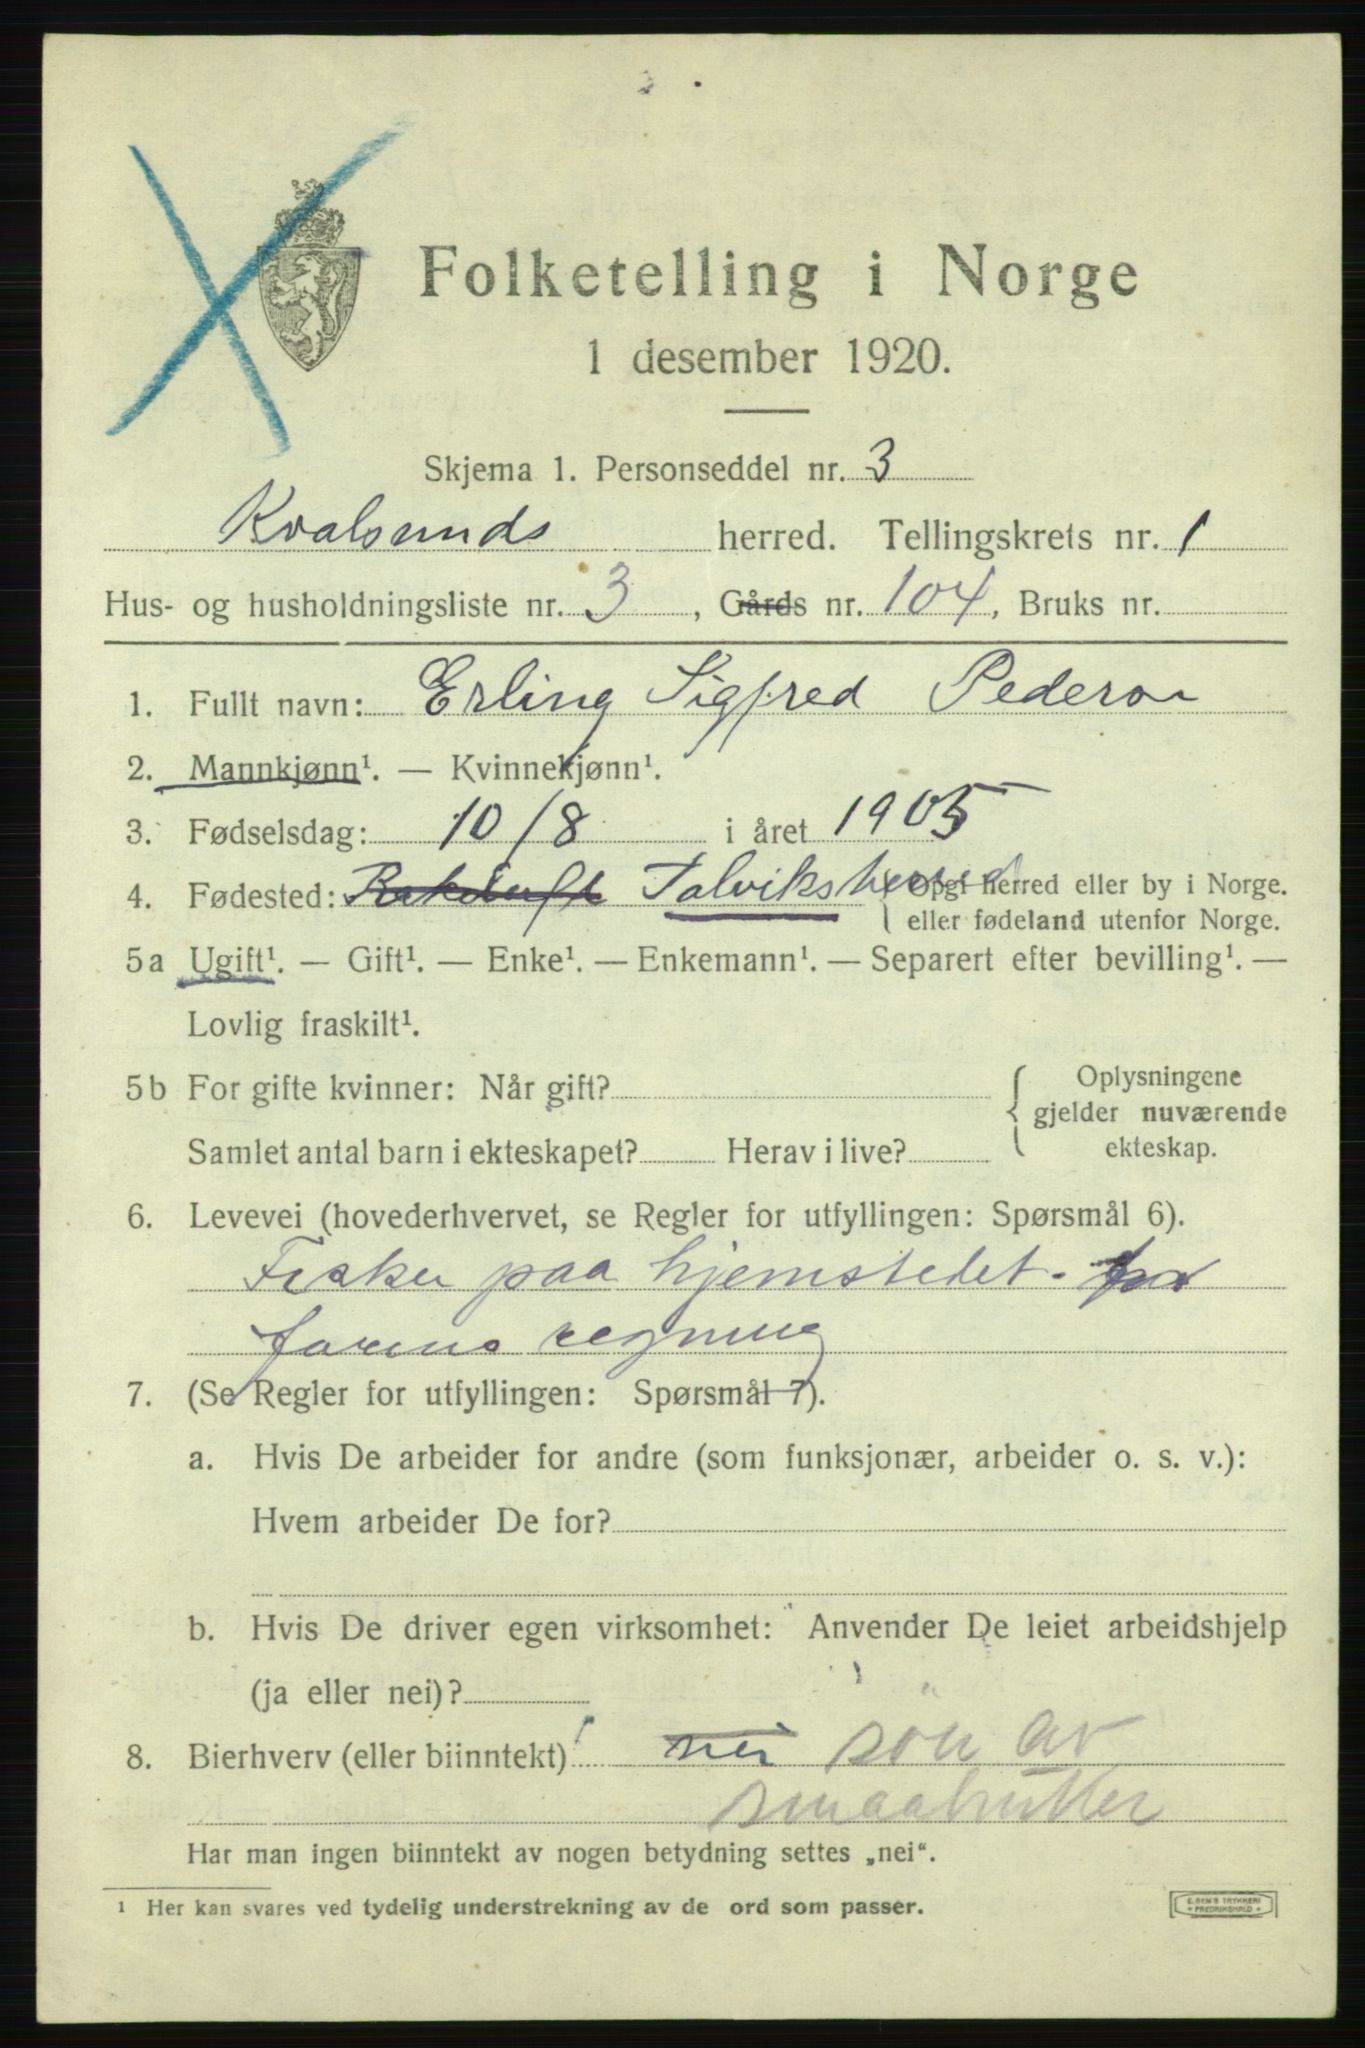 Folketelling i Norge
1 desember 1920.
Skjema 1. Personseddel nr. 3
Kvalsunds herred. Tellingskrets nr. 1
Hus- og husholdningsliste nr. 3, Gårds nr. 104, Bruks nr.
1. Fullt navn: Erling Sigfred Pederson
2. Mannkjønn¹. — Kvinnekjønn¹.
3. Fødselsdag: 10/8 i året 1905
4. Fødested: Talviks herred { Opgi herred eller by i Norge.
eller fødeland utenfor Norge.
5a Ugift¹. — Gift¹. — Enke¹. — Enkemann¹. — Separert efter bevilling¹. —
Lovlig fraskilt¹.
5b For gifte kvinner: Når gift? { Oplysningene
gjelder nuværende
Samlet antal barn i ekteskapet? Herav i live? ekteskap.
6. Levevei (hovederhvervet, se Regler for utfyllingen: Spørsmål 6).
Fisker paa hjemstedet. for
farens regning
7. (Se Regler for utfyllingen: Spørsmål 7).
a. Hvis De arbeider for andre (som funksjonær, arbeider o. s. v.):
Hvem arbeider De for?
b. Hvis De driver egen virksomhet: Anvender De leiet arbeidshjelp
(ja eller nei)?
8. Bierhverv (eller biinntekt) nei sön av
smaabruker
Har man ingen biinntekt av nogen betydning settes „nei“.
¹ Her kan svares ved tydelig understrekning av de ord som passer.
E. SEM'S TRYKKERI
FREDRIKSHALD